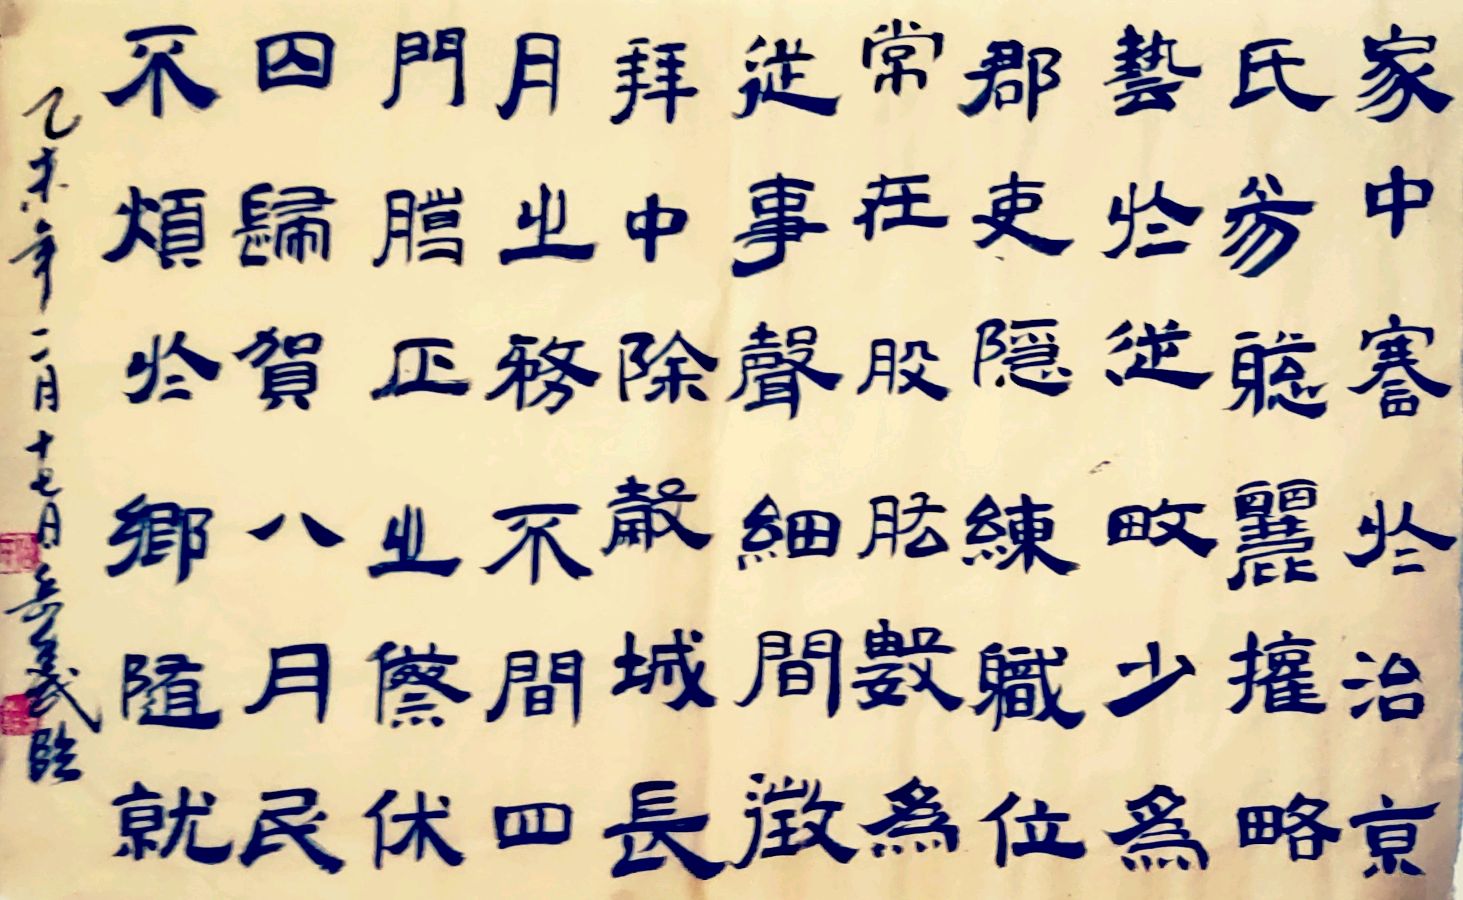 家中謇於治京
氏易聰麗權略
藝於從畋少為
郡吏隱練職位
常在股肱數為
從事聲細間徵
拜中除穀城長
月之務不間四
門臘正之僚休
囚歸賀八月民
不煩於鄉隨就
乙未年二月十七日岳臨